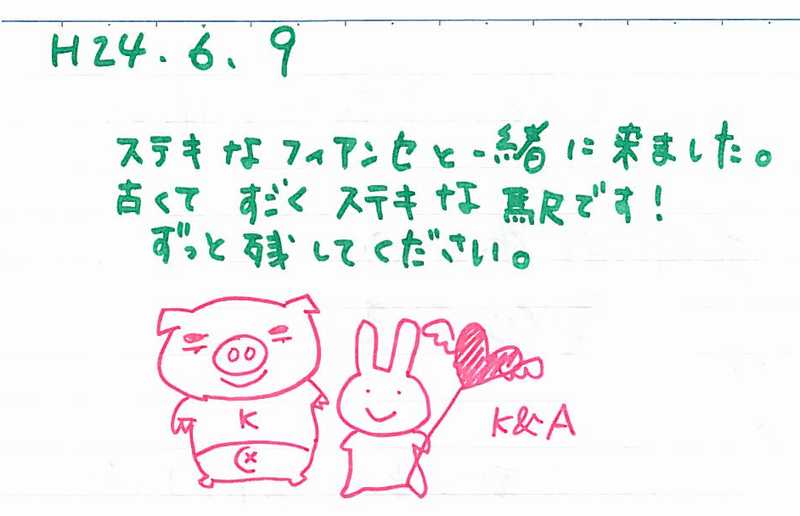 H24.6.9
ステキなフィアンセと一緒に来ました。
古くてすごくステキな駅です!
ずっと残してください。
K
K&A